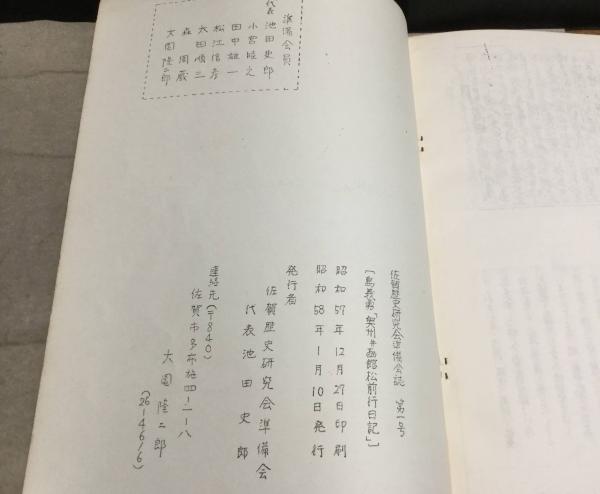 準備会員
代表 池田史郎
小宮睦之
田中雄一
松江信彦
太田順三
森周蔵
大園隆二郎
佐賀歴史研究会準備会誌 第一号
［島義勇「奥州并函館松前行日記」］
昭和57年12月27日印刷
昭和58年1月10日発行
発行者
佐賀歴史研究会準備会
代表 池田史郎
連絡先（〒840）
佐賀市多布施四-二-一八
大園隆二郎
（26-4616）